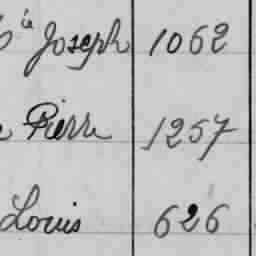 Joseph 1062
Pierre 1257
Louis 626